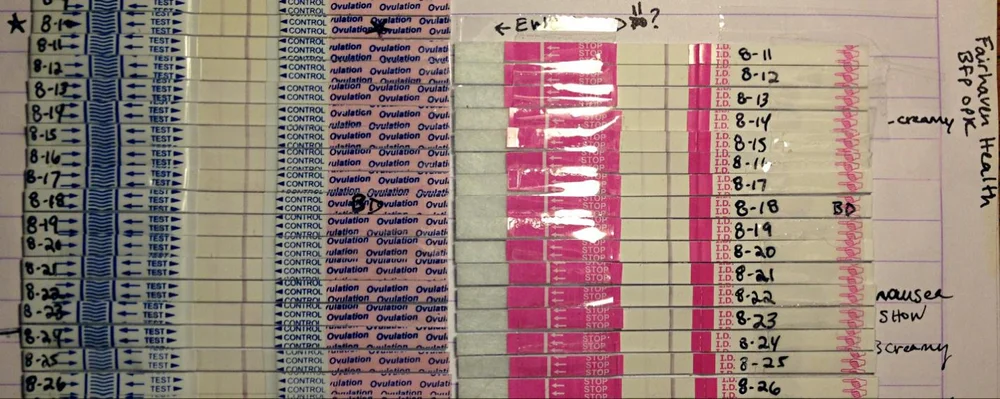 8-1 CONTROL Ovulation Ovulation
← EW ?
8-11 TEST CONTROL Ovulation Ovulation STOP I.D. 8-11
8-12 TEST CONTROL Ovulation Ovulation STOP I.D. 8-12
8-13 TEST CONTROL Ovulation Ovulation STOP I.D. 8-13
8-14 TEST CONTROL Ovulation Ovulation STOP I.D. 8-14 -creamy
8-15 TEST CONTROL Ovulation Ovulation STOP I.D. 8-15
8-16 TEST CONTROL Ovulation Ovulation STOP I.D. 8-16
8-17 TEST CONTROL Ovulation Ovulation STOP I.D. 8-17
8-18 TEST CONTROL BD Ovulation STOP I.D. 8-18 BD
8-19 TEST CONTROL Ovulation Ovulation STOP I.D. 8-19
8-20 TEST CONTROL Ovulation Ovulation STOP I.D. 8-20
8-21 TEST CONTROL Ovulation Ovulation STOP I.D. 8-21
8-22 TEST CONTROL Ovulation Ovulation STOP I.D. 8-22 nausea
8-23 TEST CONTROL Ovulation Ovulation STOP I.D. 8-23 show
8-24 TEST CONTROL Ovulation Ovulation STOP I.D. 8-24 creamy
8-25 TEST CONTROL Ovulation Ovulation STOP I.D. 8-25
8-26 TEST CONTROL Ovulation Ovulation STOP I.D. 8-26
Fairhaven Health
BFP OPK